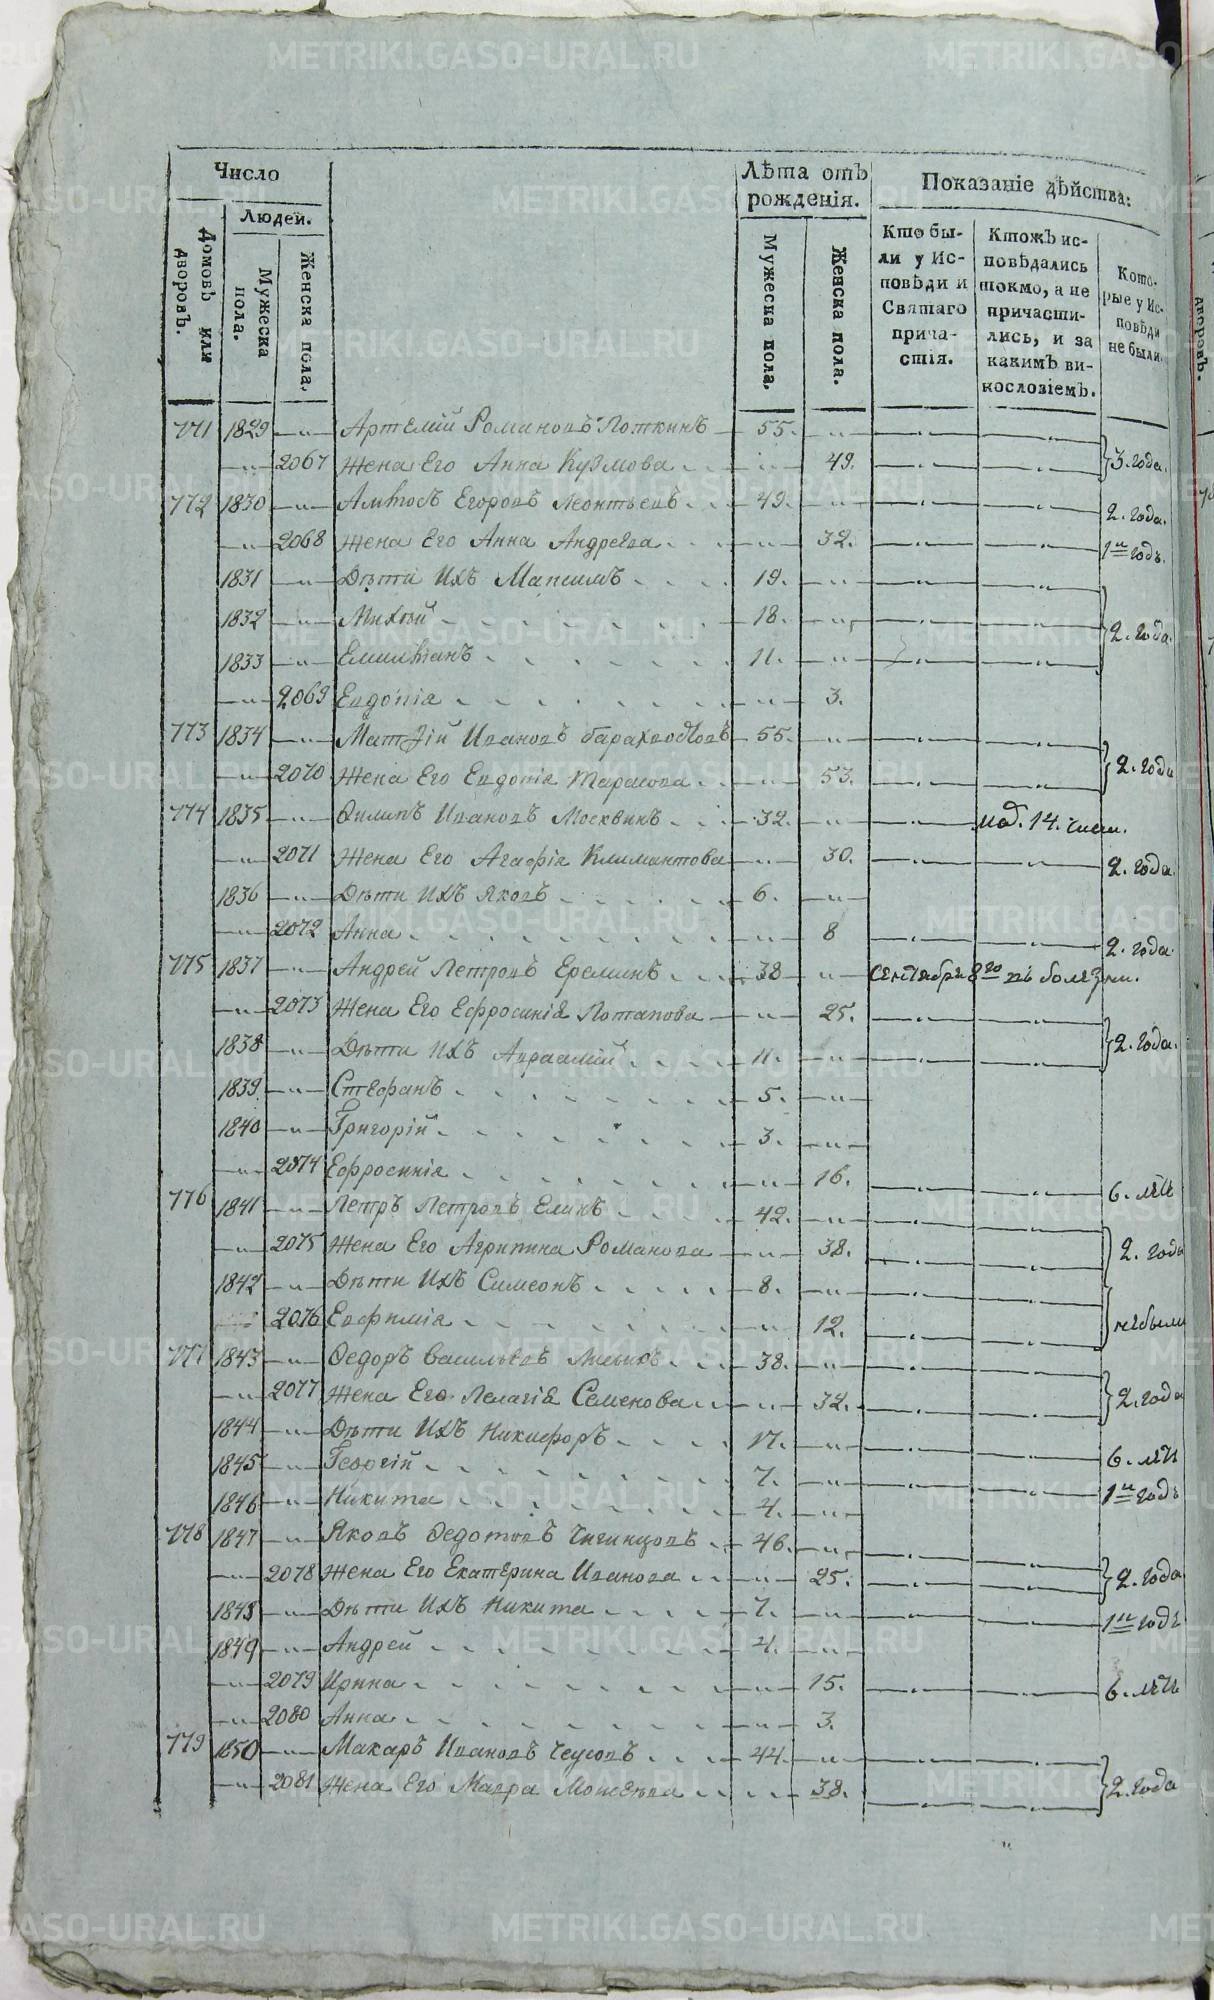 METRIKI.GASO-URAL.RU
Число
Людей.
Домовъ или дворовъ.
Мужеска пола.
Женска пола.
Лѣта отъ рожденія.
Мужеска пола.
Женска пола.
Показаніе дѣйства:
Кто бы-
ли у Ис-
повѣди и
Святаго
прича-
стія.
Ктожъ ис-
повѣдались
токмо, а не
причасти-
лись, и за
какимъ ви-
нословіемъ.
Кото-
рые у Ис-
повѣди
не были.
771 1829 —"— Артемій Романовъ Поткинъ 55. —"—
—"— 2067 Жена Его Анна Кузмова 49. 3. года.
772 1830 —"— Егоровъ Леонтьевъ 49. —"— 2. года.
—"— 2068 Жена Его Анна Андреева —"— 32. 1й годъ.
1831 —"— Дѣти Ихъ Максимъ 19. —"—
1832 —"— 18. —"— 2. года.
1833 —"— Емилианъ 11. —"—
—"— 2069 Евдокія —"— 3.
773 1834 —"— Ивановъ 55. —"—
—"— 2070 Жена Его Евдокія Тарасова —"— 53. 2. года
774 1835 —"— Филипъ Ивановъ Москвинъ 32. —"— 14. числа.
—"— 2071 Жена Его Агафія Климантова —"— 30. 2. года.
1836 —"— Дѣти Ихъ Яковъ 6. —"—
—"— 2072 Анна —"— 8 2. года.
775 1837 —"— Андрей Петровъ Ереминъ 38 —"— Сентября 8го въ болезни.
—"— 2073 Жена Его Ефросинія Потапова —"— 25.
1838 —"— Дѣти Ихъ Авраамій 11. —"— 2. года.
1839 —"— Стефанъ 5. —"—
1840 —"— Григорій 3. —"—
—"— 2074 Ефросинія —"— 16. 6. лѣтъ
776 1841 —"— Петръ Петровъ Елинъ 42. —"—
—"— 2075 Жена Его Агрипина Романова —"— 38. 2. года
1842 —"— Дѣти Ихъ Симеонъ 8. —"—
2076 Евфимія —"— 12. небыли
777 1843 —"— Федоръ Васильевъ 38. —"—
—"— 2077 Жена Его Пелагія Семенова —"— 32. 2. года
1844 —"— Дѣти Ихъ Никифоръ 17. —"— 6. лѣтъ
1845 —"— Георгій 7. —"— 1й годъ
1846 —"— Никита 4. —"—
778 1847 —"— Яковъ Федотовъ Чигинцовъ 46. —"—
—"— 2078 Жена Его Екатерина Иванова —"— 25. 2. года.
1848 —"— Дѣти Ихъ Никита 7. —"— 1й годъ
1849 —"— Андрей 4. —"—
—"— 2079 Ирина —"— 15. 6. лѣтъ
—"— 2080 Анна —"— 3.
779 1850 —"— Макаръ Ивановъ 44. —"—
—"— 2081 Жена Его Мавра Моисеева 38. 2. года